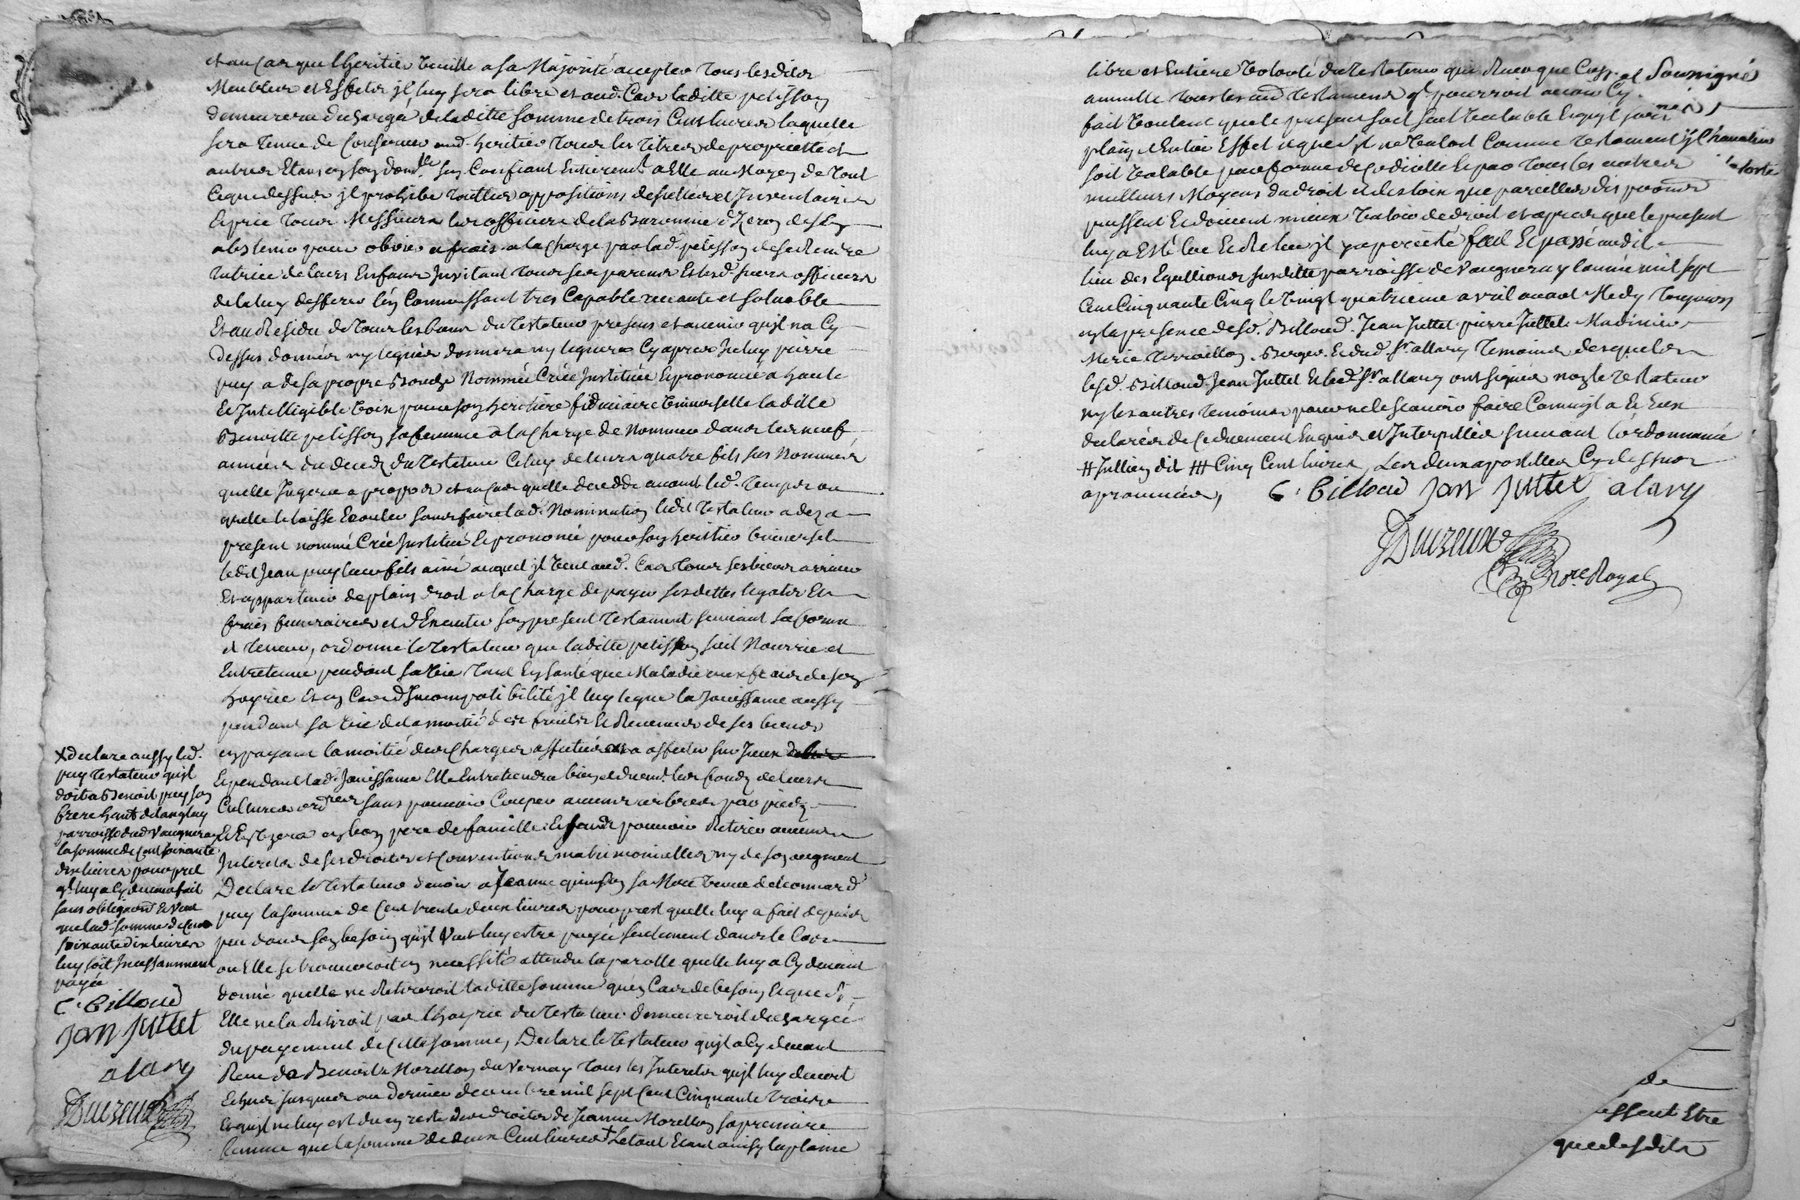 et au cas que l'heritier veuille a sa Majorité accepter tous lesdits
Meubles et Effets jl luy sera libre et aud. Cas laditte pelisson
demeurera dechargé de laditte somme de trois Cent livres laquelle
sera tenue de Conserver aud. heritier tous les titres de proprietté et
autres Etans en son dom.lle sen Confiant Entierem.t a Elle au Moyen de tout
Ceque dessus jl prohibe touttes appositions de scellés et Inventaires
Et prie tous Messieurs les officiers de la Baronnie d'Yzeron de s'en
abstenir pour obvier a frais a la charge par lad. pelisson de se Rendre
tutrice de leurs Enfans Invitant tous ses parens Et lesd. sieurs officiers
de la luy defferer len Connoissant tres Capable et solvable
Et au Residu de tous les biens du Testateur presens et avenir quil na Cy
dessus donnés ny legués donnera ny leguera Cy apres Jceluy pierre
puy a de sa propre Bouche Nommée Créée Instituée Et prononcée a haute
Et Intelligible voix pour son heritiere fiduciaire universelle laditte
Benoitte pelisson sa femme a la Charge de Nommer dans les neuf
années du deceds du Testateur Celuy de leurs quatre fils sus Nommés
quelle Jugera a propos et au Cas quelle decedde avant led. temps ou
quelle le laisse Ecouler sans faire lad. Nomination ledit Testateur a dez a
present nommé Créé Institué Et prononcé pour son heritier universel
ledit Jean puy leur fils ainé auquel jl veut aud. Cas tous ses biens arriver
Et appartenir de plein droit a la Charge de payer ses dettes legats Et
frais funeraires et d'Executer son present Testament suivant sa forme
et teneur, ordonne le Testateur que laditte pelisson soit Nourrie et
Entretenue pendant sa vie tant En santé que Maladie aux frais de son
hoyrie Et en Cas d'Incompatibilité jl luy legue la Jouissance aussy
pendant sa vie de la moitié des fruits Et Revenus de ses biens
en payant la moitié des Charges affectées ou a affecter sur Jceux
Et pendant lad. Jouissance Elle Entretiendra bien et duem.t les fonds de leurs
Cultures ord.res sans pouvoir Couper aucuns arbres par pieds
Et En Usera en bon pere de famille Et sans pouvoir Retirer aucuns
Interets de ses droits et Conventions matrimonielles ny de son augment
Declare le Testateur devoir a Jeanne quinson sa Mere veuve de Leonard
puy la somme de Cent trente deux livres pour prest quelle luy a fait depuis
peu dans son besoin quil veut luy estre payée seulement dans le Cas
ou Elle se trouveroit en necessité attendu la parolle quelle luy a Cy devant
donné quelle ne Retireroit laditte somme quen Cas de besoin Et que sy
Elle ne la Retiroit pas l'hoyrie du Testateur demeureroit dechargée
du payement de Cette somme, Declare le Testateur quil a Cy devant
Remis a Benoist Morellon du Vernay tous les Interets quil luy devoit
Echus Jusques au dernier decembre mil sept Cent Cinquante trois
Et quil ne luy est du en reste des droits de Jeanne Morellon sa premiere
femme que la somme de deux Cent livres + Le tout Etant ainsy la pleine
X declare aussy led.
puy Testateur quil
doit a Benoit puy son
frere habt. de
parroisse dud. Vaugneray
la somme de Cent soixante
dix livres pour prest
ql. luy a Cy devant fait
sans obligaon. Et veut
que lad. somme de Cent
soixante dix livres
luy soit Jncessamment
payée
C. Billoud
Jan Juttet
alary
Duizeux
libre et Entiere Volonté du Testateur qui Revoque Casse et
annulle tous les autres Testamens ql. pourroit avoir Cy
fait voulant que le present soit seul valable Et quil sorte
plain Et Entier Effet Et que sil ne valoit Comme Testament jl
soit valable par forme de Codicille Et par tous les autres
meilleurs Moyens de droit et des loix que parcelles dispositions
puissent Et doivent mieux valoir de droit et apres que le present
luy a Esté lu Et Relu jl y a persisté fait Et passé audit
lieu des Eguillons susditte parroisse de Vaugneray l'année mil sept
Cent Cinquante Cinq le vingt quatrieme avril avant Midy toujours
en la presence desd. Billoud. Jean Juttet pierre Juttet Madinier
Mercier Berger. Et dud. Sr. allary temoins desquels
lesd. Billoud Jean Juttet Et led. Sr. allary ont signés non le Testateur
ny les autres temoins pour ne le scavoir faire Comme jl a Et Eux
declarés de Ce duement Enquis et Interpellés suivant l'ordonnance
# Jullien dit ## Cinq Cent livres, Les deux apostilles Cy dessus
aprouvées,
C. Billoud Jan Juttet alary
Duizeux
No.re Royal
soussigné
Chevalier
essent Etre
que lesdits